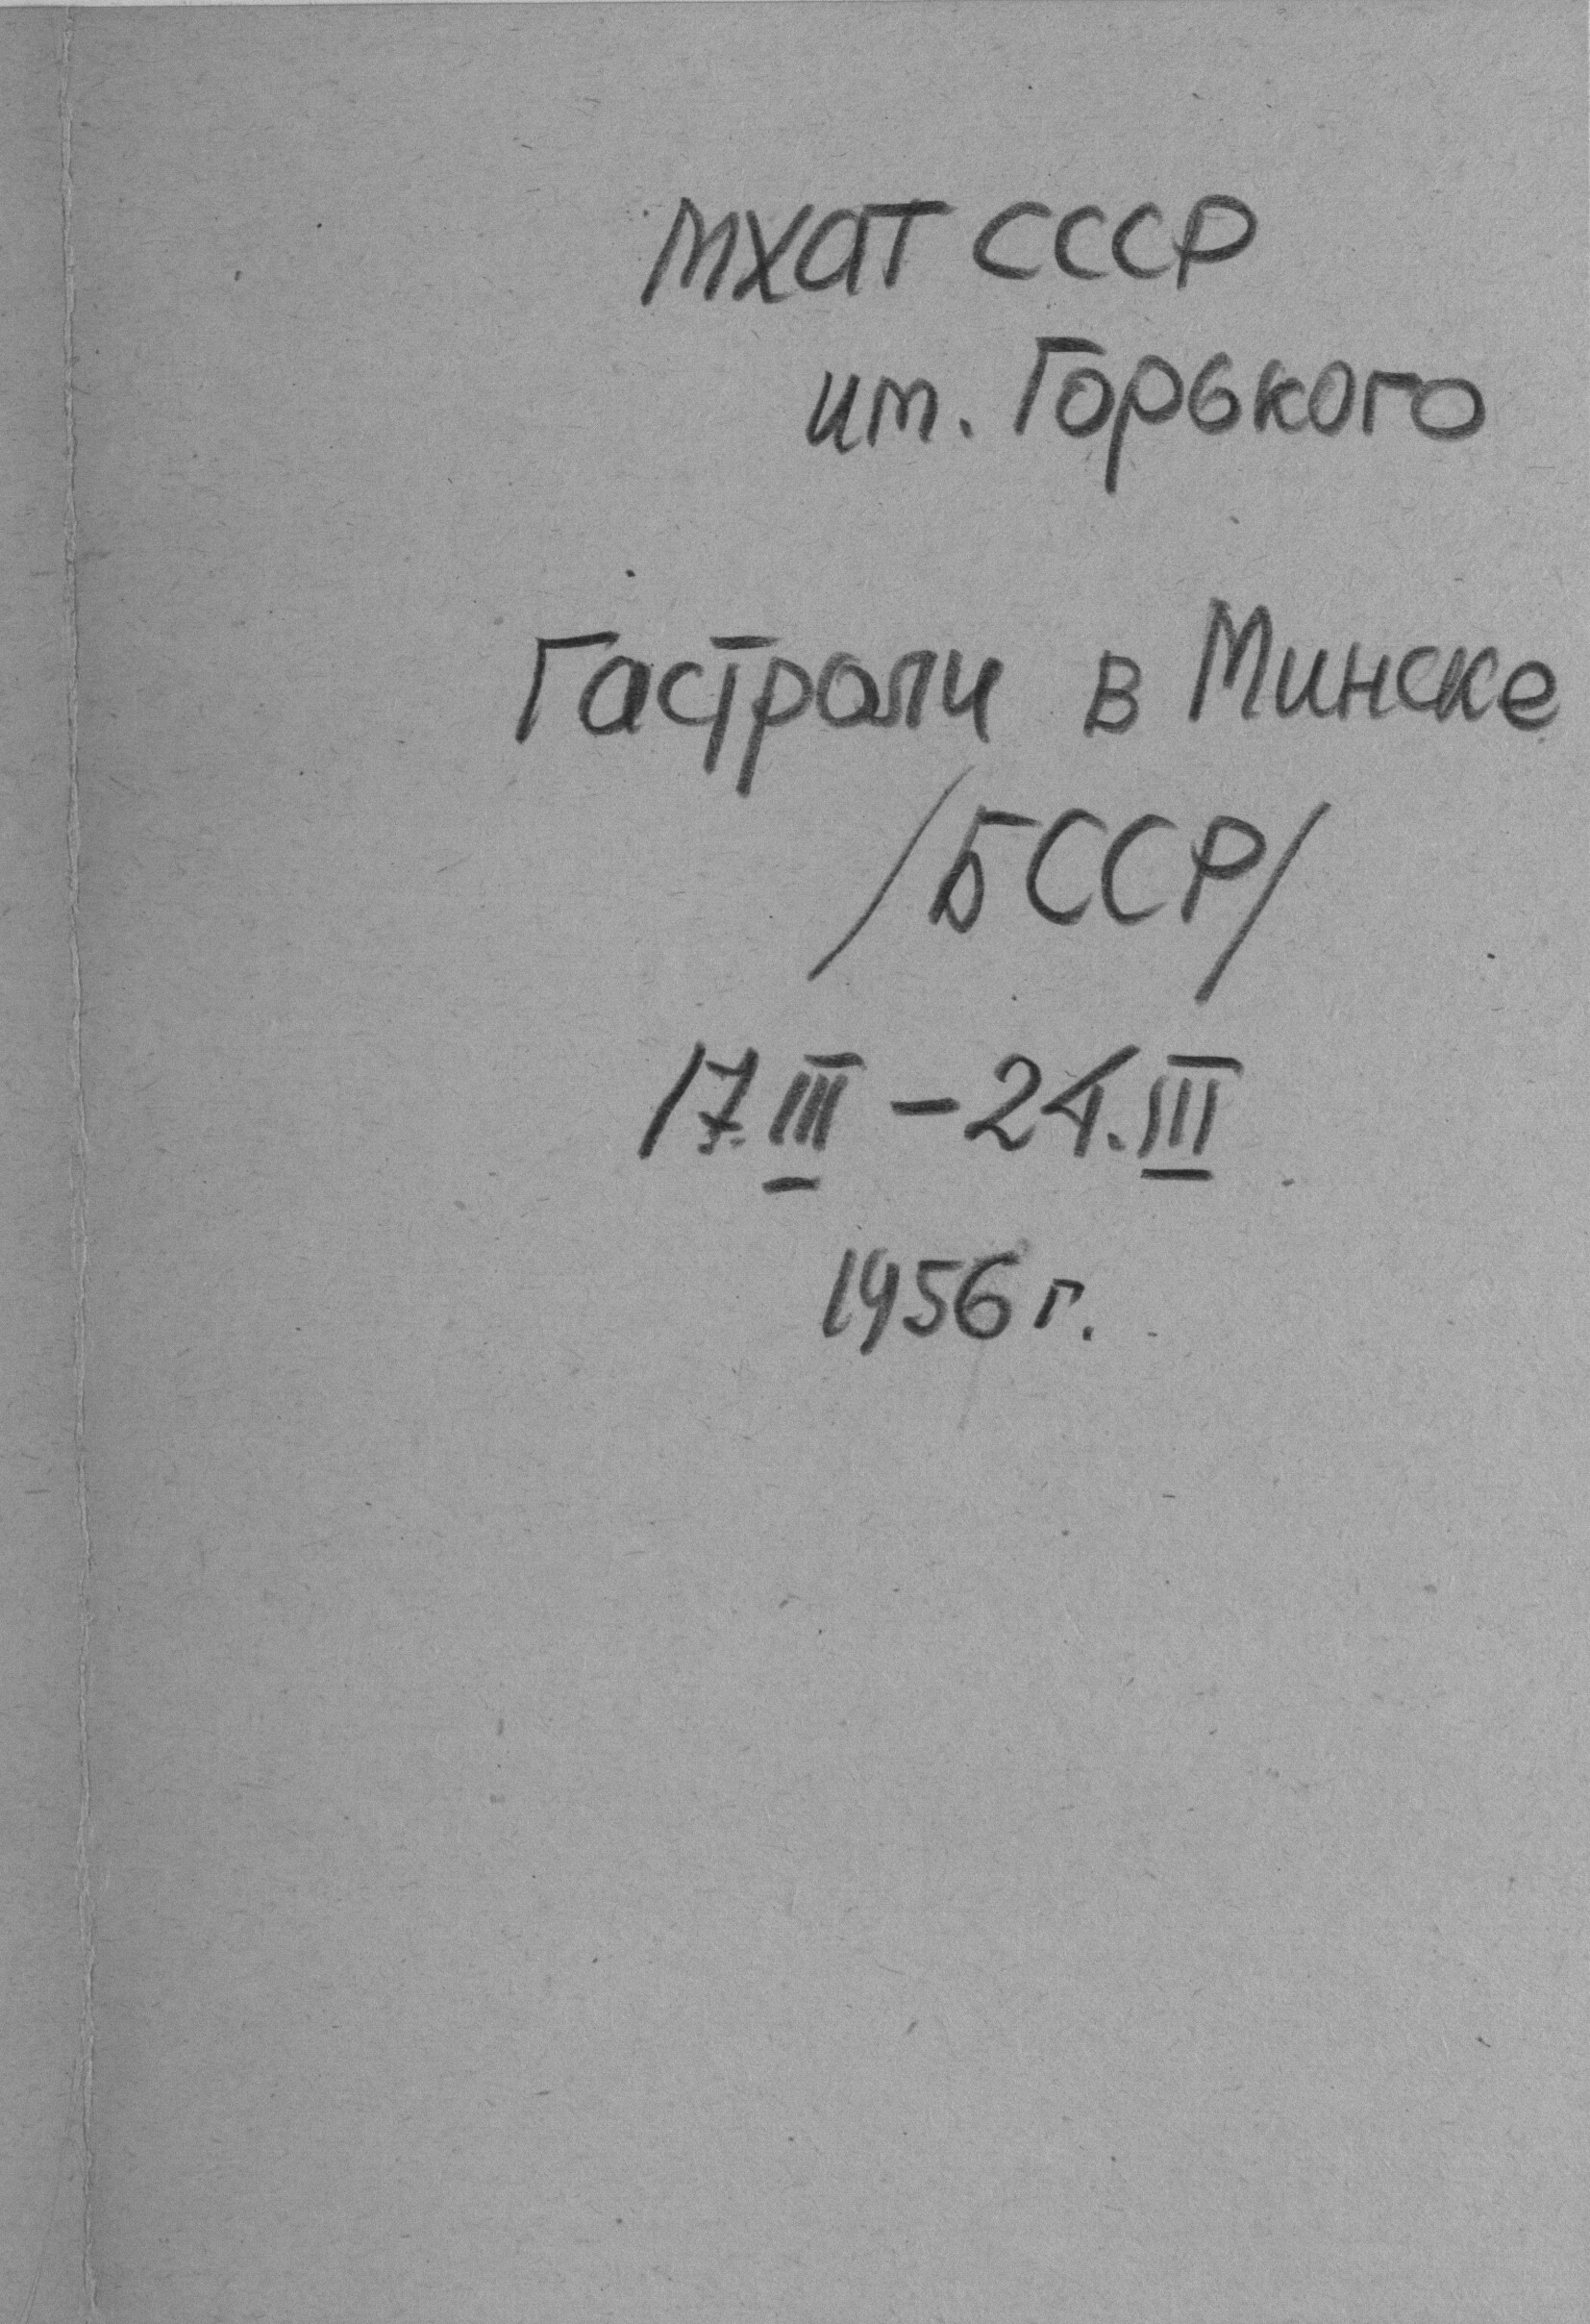 МХАТ СССР
им. Горького
Гастроли в Минске
/БССР/
17.III – 24.III
1956 г.